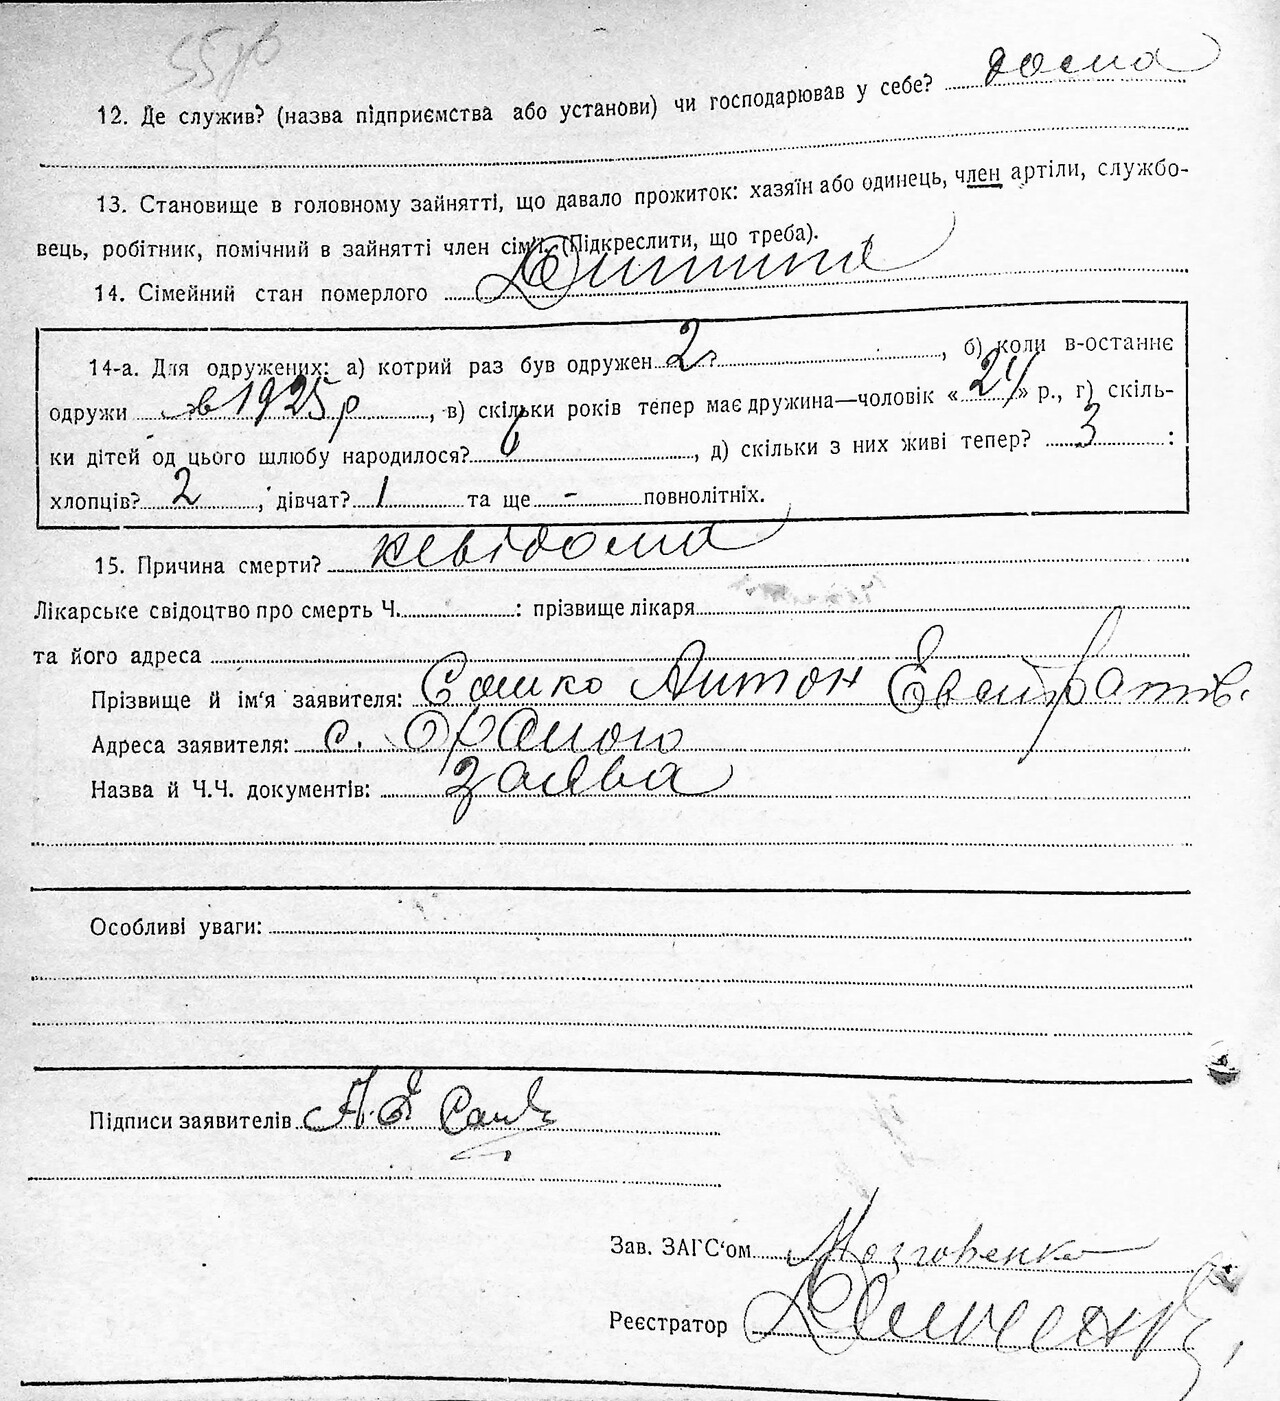 12. Де служив? (назва підприємства або установи) чи господарював у себе? дома
13. Становище в головному зайнятті, що давало прожиток: хазяїн або одинець, член артіли, службо-
вець, робітник, помічний в зайнятті член сім'ї. (Підкреслити, що треба).
14. Сімейний стан померлого Дитина
14-а. Для одружених: а) котрий раз був одружен 2 ? , б) коли в-останнє
одружи в 1925 р , в) скільки років тепер має дружина—чоловік « 24 » р., г) скіль-
ки дітей од цього шлюбу народилося? 6 , д) скільки з них живі тепер? 3 :
хлопців? 2 , дівчат? 1 та ще - повнолітніх.
15. Причина смерти? невідома
Лікарське свідоцтво про смерть Ч. : прізвище лікаря
та його адреса
Прізвище й ім'я заявителя: Сашко Антон Евстратов.
Адреса заявителя: с. Ораного
Назва й Ч.Ч. документів: заява
Особливі уваги:
Підписи заявителів А. Е
Зав. ЗАГС'ом
Реєстратор